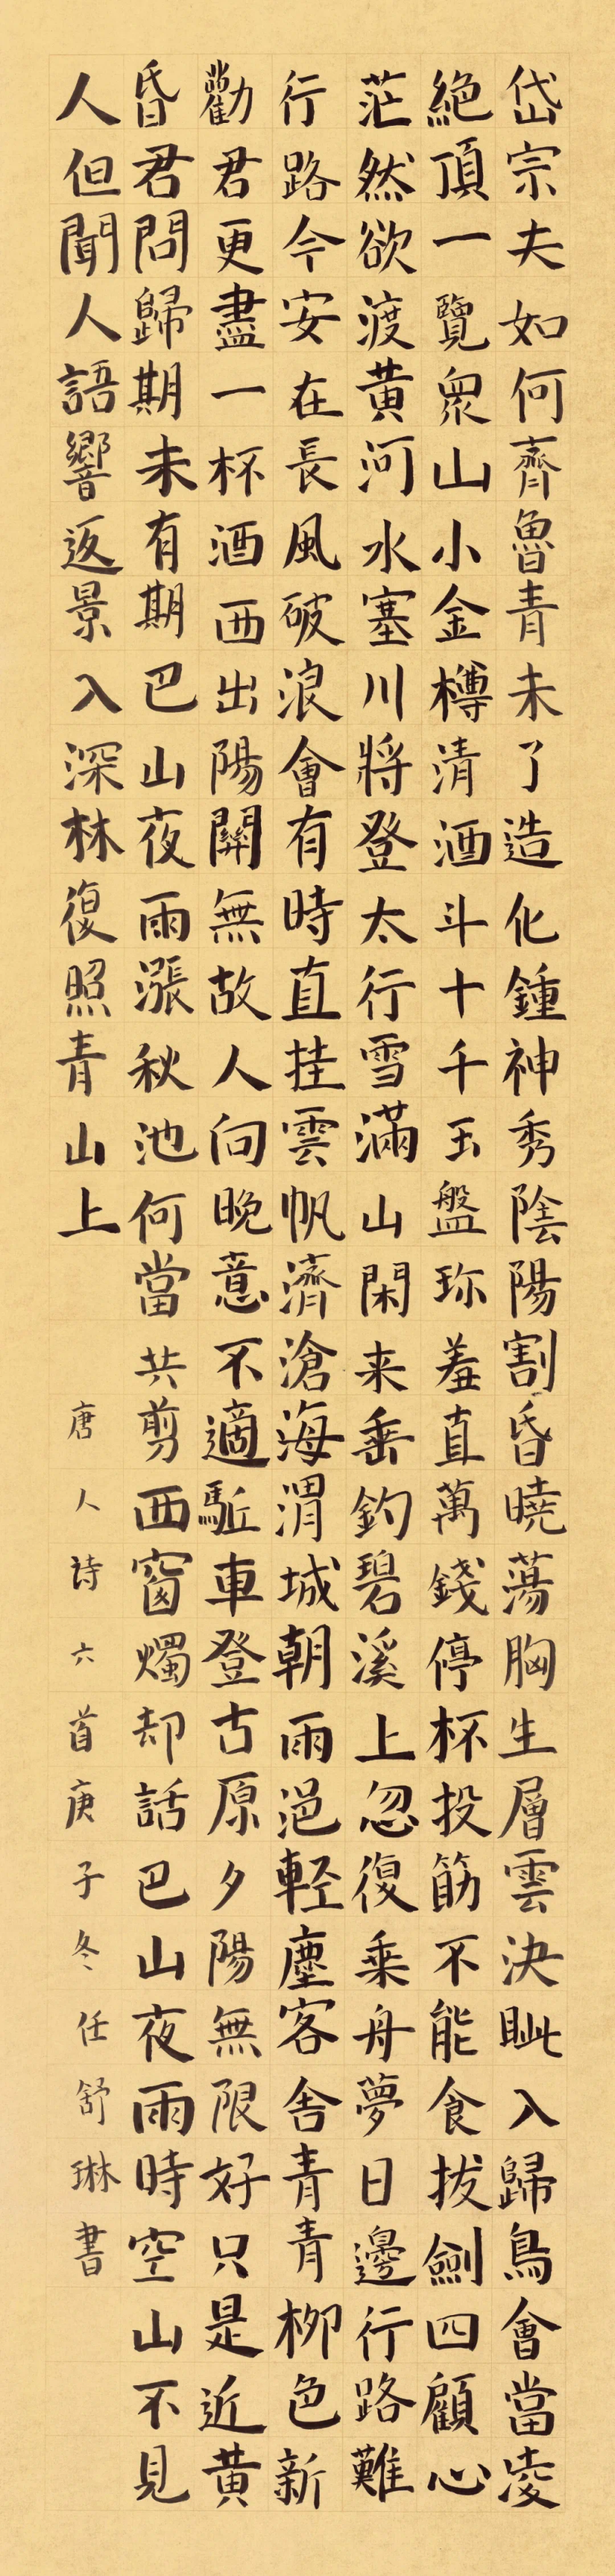 岱宗夫如何齊魯青未了造化鍾神秀陰陽割昏曉蕩胸生層雲決眦入歸鳥會當凌
絕頂一覽衆山小金樽清酒斗十千玉盤珎羞直萬錢停杯投筯不能食拔劍四顧心
茫然欲渡黃河水塞川將登太行雪滿山閑来垂釣碧溪上忽復乘舟夢日邊行路難
行路今安在長風破浪會有時直挂雲帆濟滄海渭城朝雨浥輕塵客舍青青柳色新
勸君更盡一杯酒西出陽關無故人向晚意不適駈車登古原夕陽無限好只是近黃
昏君問歸期未有期巴山夜雨漲秋池何當共剪西窗燭却話巴山夜雨時空山不見
人但聞人語響返景入深林復照青山上
唐人詩六首庚子冬任舒琳書